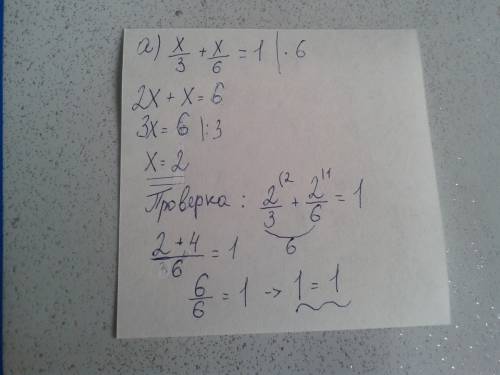 а) x/3 + x/6 = 1 | · 6
2x + x = 6
3x = 6 | : 3
x = 2
Проверка : 2/3 (2 + 2/6 (1 = 1
6
2 + 4/6 = 1
6/6 = 1 → 1 = 1